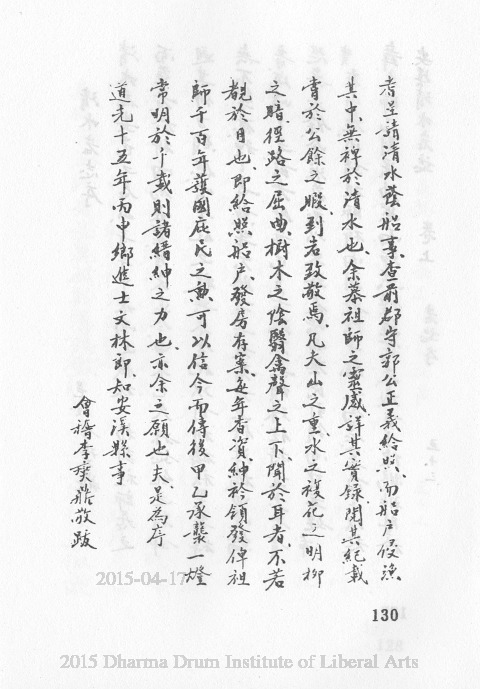 耆呈請清水薦船事、查前郡守郭公正義給照、而船戶侵漁
其中、無裨於清水也、余慕祖師之靈感、詳其實錄、閱其紀載
嘗於公餘之暇、到岩致敬焉、凡夫山之重、水之複、花之明、柳
之暗、徑路之屈曲、樹木之陰翳、禽聲之上下、聞於耳者、不若
覩於目也、即給照船戶、發房存案、每年香資、紳衿領發、俾祖
師千百年護國庇民之勲、可以信今而傳後、甲乙承襲、一燈
常明於千載、則諸縉紳之力也、亦余之願也夫、是為序
道光十五年丙申鄉進士文林郎、知安溪縣事
會稽李奕鼎敬跋
2015-04-17
130
2015 Dharma Drum Institute of Liberal Arts